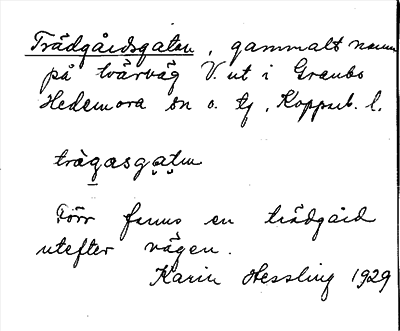 Trädgårdsgatan, gammalt namn
på tvärväg V. ut i Graubo
Hedemora sn o. tg, Kopparb. l.
trägasgatan
Förr fanns en trädgård
utefter vägen.
Karin Hessling 1929